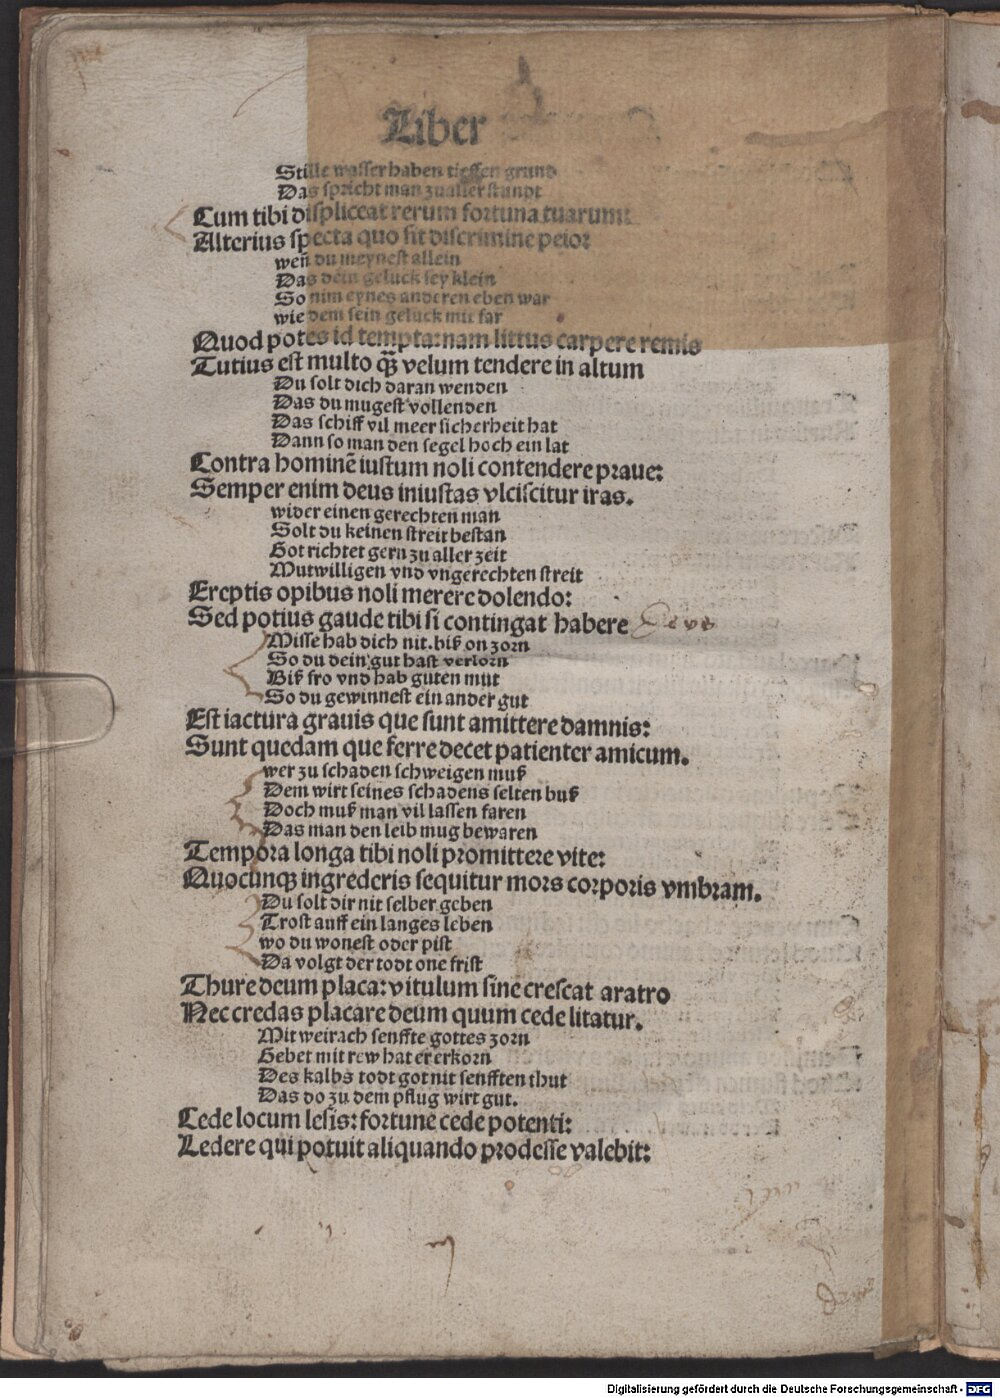 Liber
Stille wasser haben tieffen grund
Das spricht man zu aller stundt
Cum tibi displiceat rerum fortuna tuarum:
Alterius specta quo sit discrimine peior
wen̄ du meynest allein
Das dein geluck sey klein
So nim eynes anderen eben war
wie dem sein geluck mit far
Quod potes id tempta: nam littus carpere remis
Tutius est multo q̃ȝ velum tendere in altum
Du solt dich daran wenden
Das du mugest vollenden
Das schiff vil meer sicherheit hat
Dann so man den segel hoch ein lat
Contra hominē iustum noli contendere praue:
Semper enim deus iniustas vlciscitur iras.
wider einen gerechten man
Solt du keinen streit bestan
Got richtet gern zu aller zeit
Mutwilligen vnd vngerechten streit
Ereptis opibus noli merere dolendo:
Sed potius gaude tibi si contingat habere
Misse hab dich nit. biß on zorn
So du dein gut hast verlorn
Biß fro vnd hab guten mut
So du gewinnest ein ander gut
Est iactura grauis que sunt amittere damnis:
Sunt quedam que ferre decet patienter amicum.
wer zu schaden schweigen muß
Dem wirt seines schadens selten buß
Doch muß man vil lassen faren
Das man den leib mug bewaren
Tempora longa tibi noli promittere vite:
Quocunqȝ ingrederis sequitur mors corporis vmbram.
Du solt dir nit selber geben
Trost auff ein langes leben
wo du wonest oder pist
Da volgt der todt one frist
Thure deum placa: vitulum sine crescat aratro
Nec credas placare deum quum cede litatur.
Mit weirach senffte gottes zorn
Gebet mit rew hat er erkorn
Des kalbs todt got nit senfften thut
Das do zu dem pflug wirt gut.
Cede locum lesis: fortune cede potenti:
Ledere qui potuit aliquando prodesse valebit:
Digitalisierung gefördert durch die Deutsche Forschungsgemeinschaft - DFG